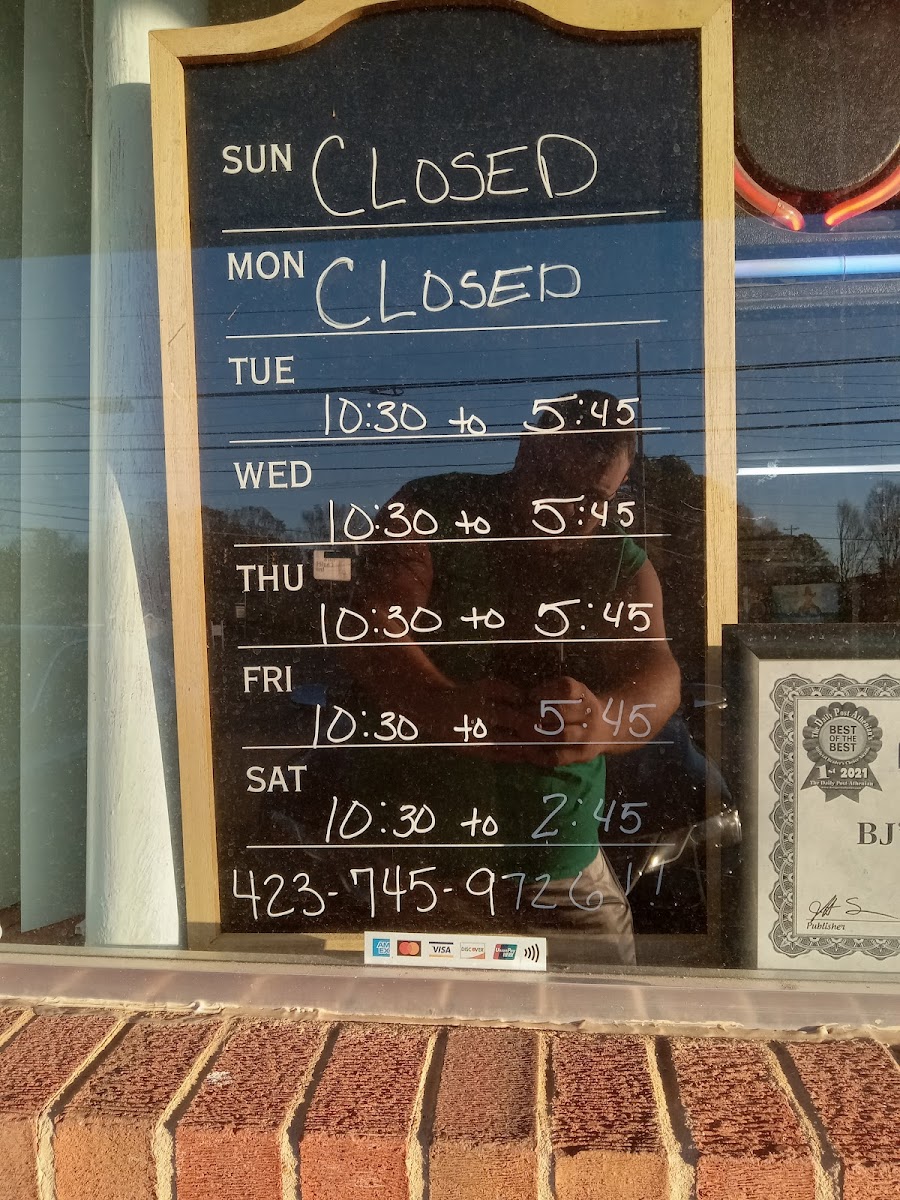 SUN CLOSED
MON CLOSED
TUE
10:30 to 5:45
WED
10:30 to 5:45
THU
10:30 to 5:45
FRI
10:30 to 5:45
SAT
10:30 to 2:45
423-745-9726
AM EX VISA DISCOVER UnionPay
The Daily Post-Athenian
BEST
OF THE
BEST
1st 2021
The Daily Post-Athenian
BJ'
Publisher